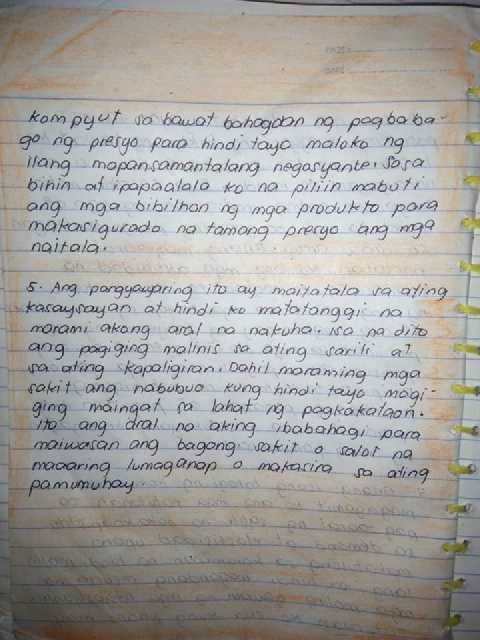 kompyut sa bawat bahagdan ng pagbaba-
go ng presyo para hindi tayo maloko ng
ilang mapansamantalang negosyante. Sasa
bihin at ipapaalala ko na piliin mabuti
ang mga bibilhan ng mga produkto para
makasigurado na tamang presyo ang mga
naitala.
5. Ang pangyayaring ito ay maitatala sa ating
kasaysayan at hindi ko matatanggi na
marami akong aral na nakuha. isa na dito
ang pagiging malinis sa ating sarili at
sa ating kapaligiran. Dahil maraming mga
sakit ang nabubuo kung hindi tayo magi-
ging maingat sa lahat ng pagkakataon.
Ito ang aral na aking ibabahagi para
maiwasan ang bagong sakit o salot na
maaaring lumaganap o makasira sa ating
pamumuhay